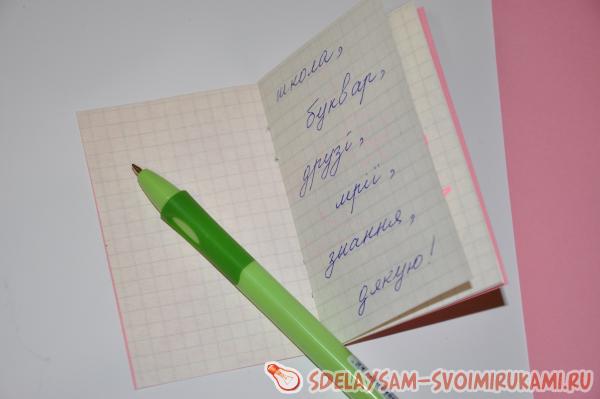 школа,
буквар,
друзі,
мрії,
знання,
дякую!
SDELAYSAM-SVOIMIRUKAMI.RU